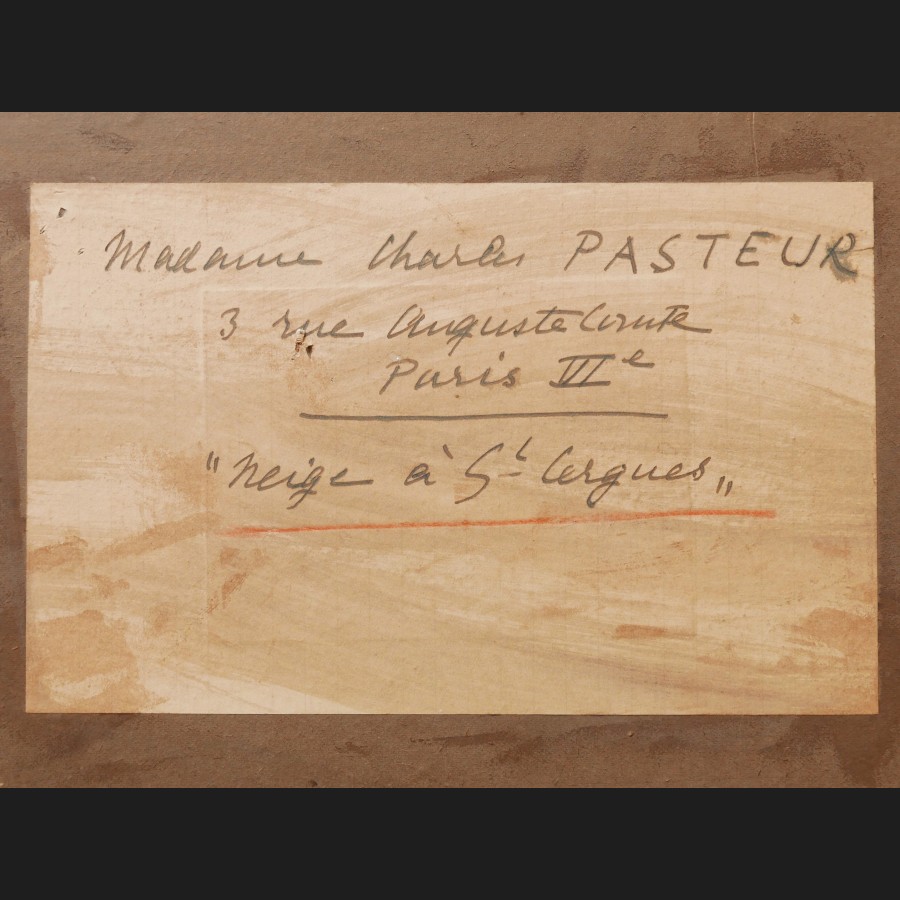 Madame Charles PASTEUR
3 rue Auguste Comte
Paris VIe
"Neige à St Cergues"